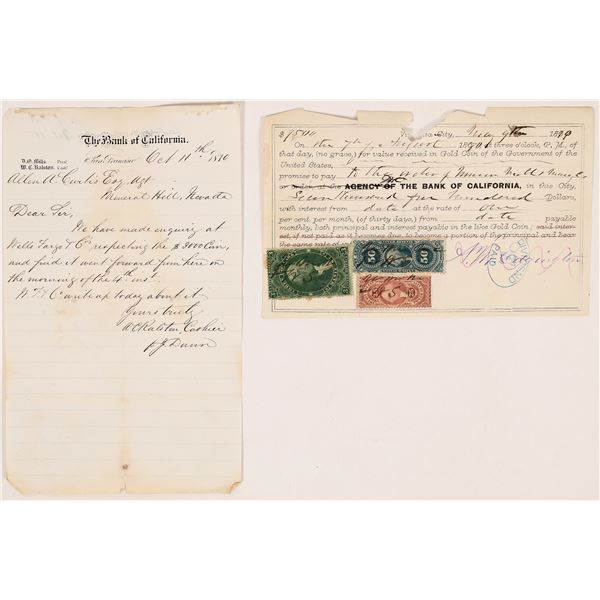 The Bank of California.
D.O. Mills. Prest
W.C. Ralston. Cashr
San Francisco Oct 11th 1870
Allen A. Curtis Esq. Agt
Mineral Hill, Nevada
Dear Sir,
We have made enquiry at
Wells Fargo & Co respecting the $3000 Coin,
and find it went forward from here on
the morning of the 4th inst.
W. F. & Co write up today about it
Yours truly
W C Ralston Cashier
$7500
City, 1870
On the 7th of August 1870 at three o'clock, P. M., of
that day, (no grace,) for value received in Gold Coin of the Government of the
United States, promise to pay to the order of Mill &
or order, at the AGENCY OF THE BANK OF CALIFORNIA, in this City,
Seven thousand five hundred Dollars,
with interest from date at the rate of one
per cent. per month, (of thirty days,) from date payable
monthly, both principal and interest payable in like Gold Coin; said inter-
est, if not paid as it becomes due, to become a portion of the principal and bear
the same rate of
50 50
5 5
PAID